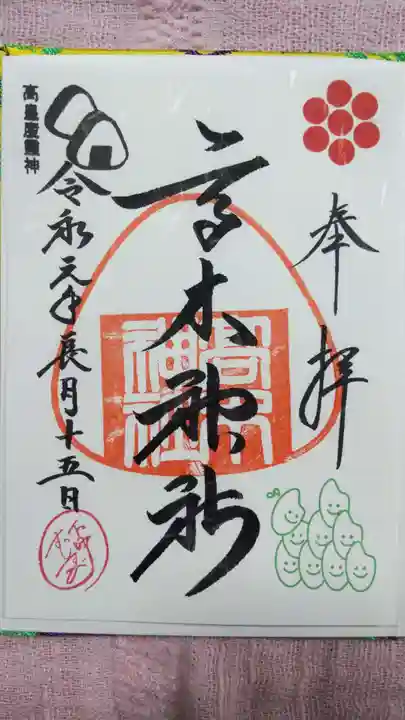 奉拝
高木神社
高木神社
高皇産靈神
令和元年長月十五日